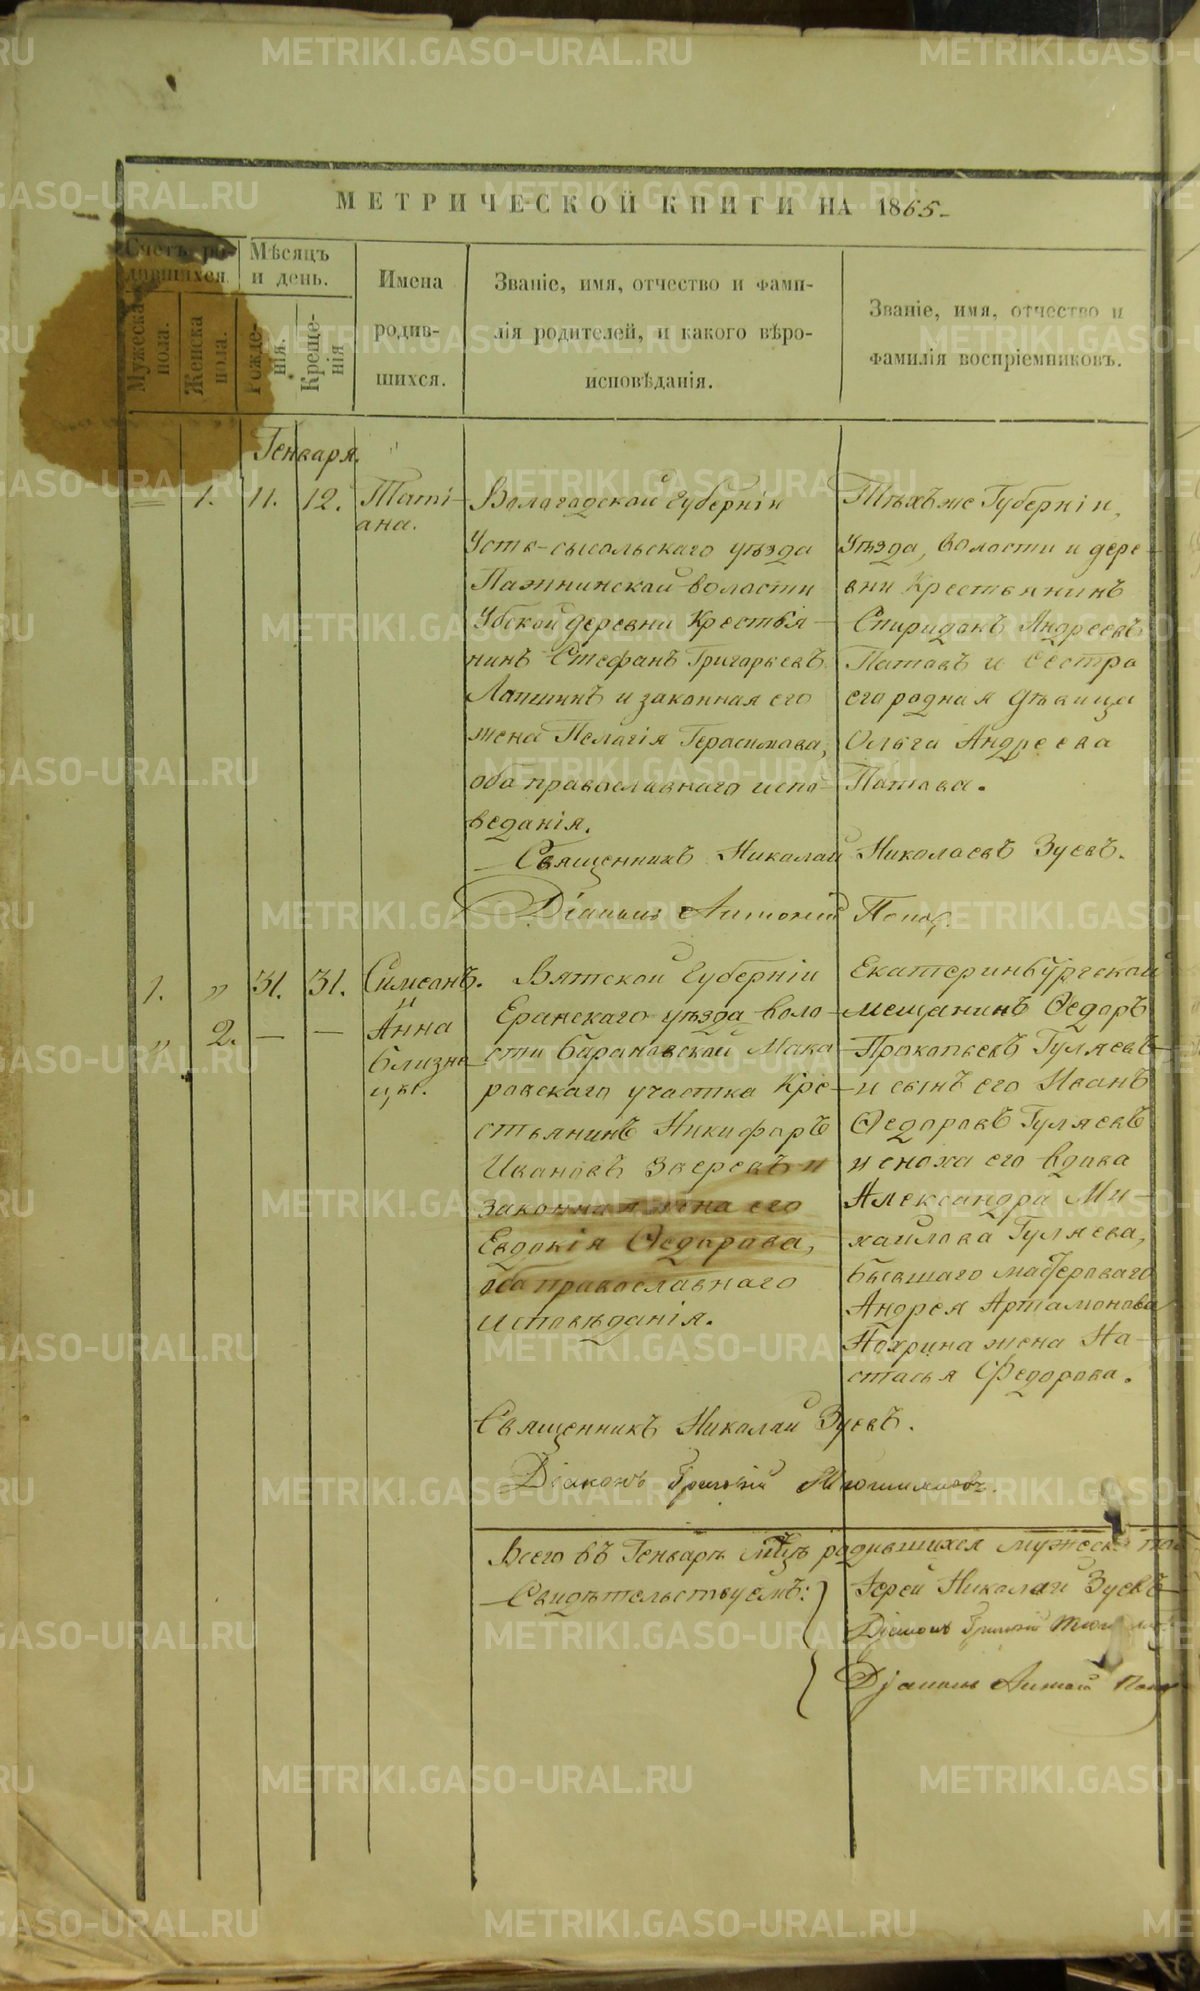 МЕТРИЧЕСКОЙ КНИГИ НА 1865
Счетъ ро-
дившихся.
Мѣсяцъ
и день.
Мужеска
пола.
Женска
пола.
Рожде-
нія.
Креще-
нія
Имена
родив-
шихся.
Званіе, имя, отчество и фами-
лія родителей, и какого вѣро-
исповѣданія.
Званіе, имя, отчество и
фамилія воспріемниковъ.
Генваря.
1. 11. 12.
Таті-
ана.
Вологодской Губерніи
Усть-сысольскаго уѣзда
волости
деревни Крестья-
нинъ Стефанъ Григорьевъ
Лапшинъ и законная его
жена Пелагія Герасимова,
оба православнаго испо-
веданія.
Тѣхъ же Губерніи,
Уѣзда, волости и дере-
вни Крестьянинъ
Спиридонъ Андреевъ
Патовъ и Сестра
его родная дѣвица
Ольга Андреева
Патова.
Священникъ Николай Николаевъ Зуевъ.
Діаконъ Антоній Попов
1. „ 31. 31.
„ 2. — —
Симеонъ.
и
Анна
близне-
цы.
Вятской Губерніи
Еранскаго уѣзда воло-
сти Барановской Мака-
ровскаго участка Кре-
стьянинъ Никифоръ
Ивановъ Зверевъ и
законная жена его
Евдокія Ѳедорова,
оба православнаго
исповѣданія.
Екатеринбургской
мещанинъ Ѳедоръ
Прокопьевъ Гуляевъ
и сынъ его Иванъ
Ѳедоровъ Гуляевъ
и сноха его вдова
Александра Ми-
хайлова Гуляева,
бывшаго мастероваго
Андрея Артамонова
Похрина жена На-
стасья Федорова.
Священникъ Николай Зуевъ.
Діаконъ Григорій
Всего въ Генварѣ мцѣ родившихся мужеск.
Свидѣтельствуемъ:
Іерей Николай Зуевъ
Діаконъ Григорій
Діаконъ Антоній
METRIKI.GASO-URAL.RU